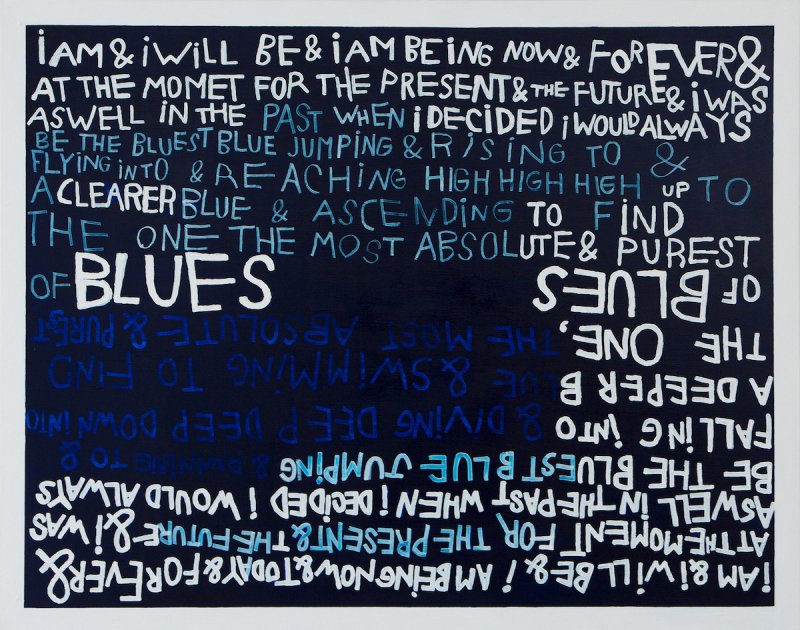 iAM & iWiLL BE & iAM BEiNG NOW & FOREVER &
AT THE MOMET FOR THE PRESENT & THE FUTURE & iWAS
ASWELL IN THE PAST WHEN iDECiDED iWOULD ALWAYS
BE THE BLUEST BLUE JUMPiNG & RiSiNG TO &
FLYiNG iNTO & REACHiNG HIGH HIGH HIGH UP TO
A CLEARER BLUE & ASCENDiNG TO FiND
THE ONE THE MOST ABSOLUTE & PUREST
OF BLUES
iAM & iWiLL BE & i AM BEiNG NOW & TODAY & FOREVER &
AT THE MOMENT FOR THE PRESENT & THE FUTURE & iWAS
ASWELL iN THE PAST WHEN i DECiDED i WOULD ALWAYS
BE THE BLUEST BLUE JUMPiNG & TO &
FALLiNG iNTO & DiViNG DEEP DEEP DOWN iNTO
A DEEPER BLUE & SWiMMiNG TO FiND
THE ONE, THE MOST ABSOLUTE & PUREST
OF BLUES